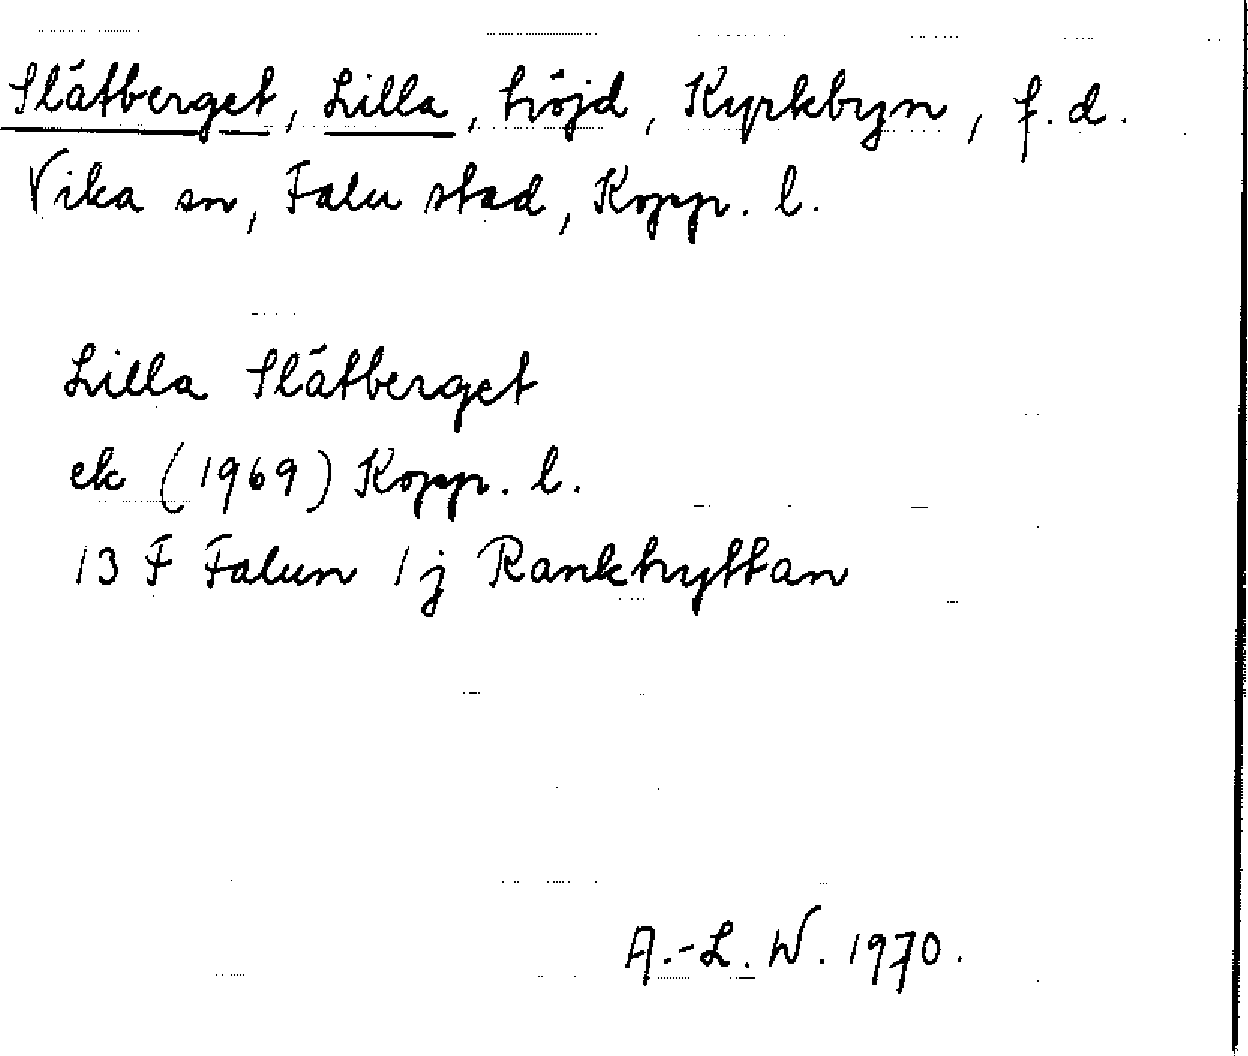 Slätberget, Lilla, höjd, Kyrkbyn, f.d.
Vika sn, Falu stad, Kopp. l.
Lilla Slätberget
ek (1969) Kopp. l.
13 F Falun 1 j Rankhyttan
A.-L. W. 1970.